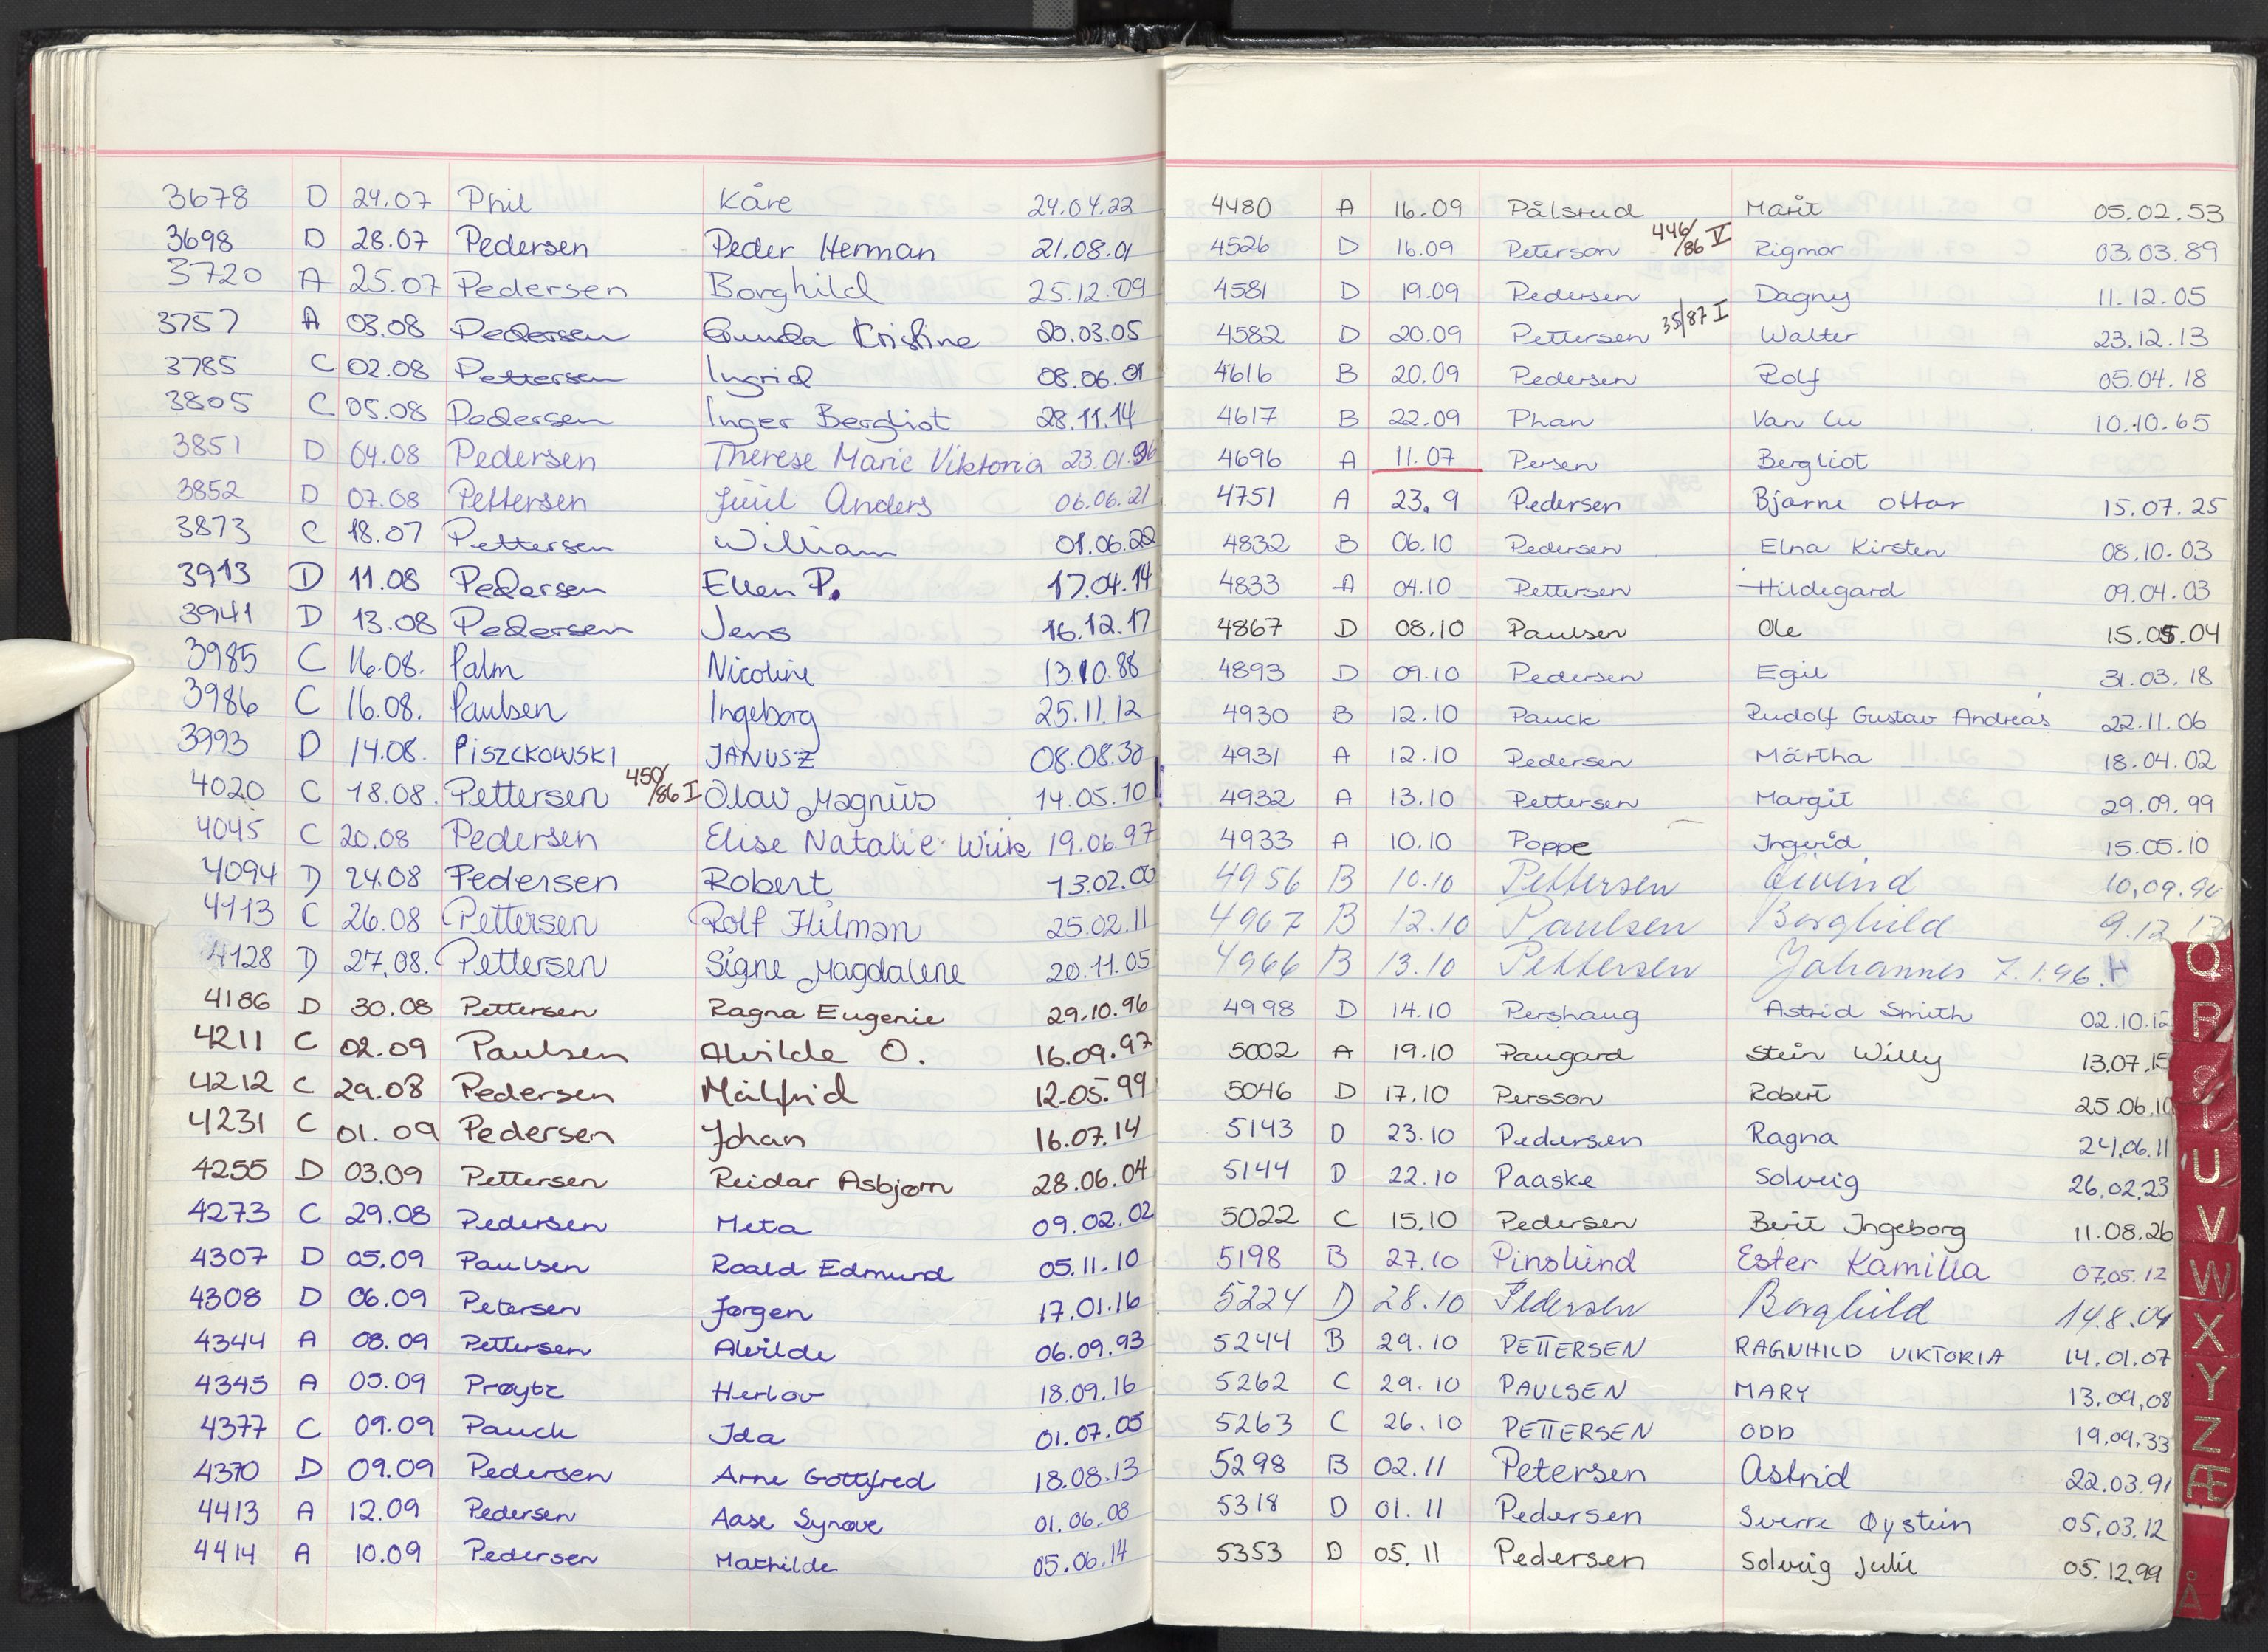 3678 D 24.07 Phil Kåre 24.04.22
3698 D 28.07 Pedersen Peder Herman 21.08.01
3720 A 25.07 Pedersen Borghild 25.12.09
3757 A 03.08 Pedersen Gunda Kristine 20.03.05
3785 C 02.08 Pettersen Ingrid 08.06.01
3805 C 05.08 Pedersen Inger Bergliot 28.11.14
3851 D 04.08 Pedersen Therese Marie Viktoria 23.01.96
3852 D 07.08 Pettersen Juul Anders 06.06.21
3873 C 18.07 Pettersen William 01.06.22
3913 D 11.08 Pedersen Ellen P. 17.04.14
3941 D 13.08 Pedersen Jens 16.12.17
3985 C 16.08. Palm Nicoline 13.10.88
3986 C 16.08. Paulsen Ingeborg 25.11.12
3993 D 14.08. PISZCKOWSKI JANUSZ 08.08.30
4020 C 18.08. Pettersen 450/86 I Olav Magnus 14.05.10
4045 C 20.08 Pedersen Elise Natalie Wiik 19.06.97
4094 D 24.08 Pedersen Robert 13.02.00
4113 C 26.08 Pettersen Rolf Hilman 25.02.11
4128 D 27.08. Pettersen Signe Magdalene 20.11.05
4186 D 30.08 Pettersen Ragna Eugenie 29.10.96
4211 C 02.09 Paulsen Alvilde O. 16.09.97
4212 C 29.08 Pedersen Målfrid 12.05.99
4231 C 01.09 Pedersen Johan 16.07.14
4255 D 03.09 Pettersen Reidar Asbjørn 28.06.04
4273 C 29.08 Pedersen Meta 09.02.02
4307 D 05.09 Paulsen Roald Edmund 05.11.10
4308 D 06.09 Petersen Jørgen 17.01.16
4344 A 08.09 Pettersen Alvilde 06.09.93
4345 A 05.09 Prøytz Herlov 18.09.16
4377 C 09.09 Pauck Ida 01.07.05
4370 D 09.09 Pedersen Arne Gottfred 18.08.13
4413 A 12.09 Pedersen Aase Synøve 01.06.08
4414 A 10.09 Pedersen Mathilde 05.06.14
4480 A 16.09 Pålsrud Marit 05.02.53
4526 D 16.09 Peterson 446/86 V Rigmor 03.03.89
4581 D 19.09 Pedersen Dagny 11.12.05
4582 D 20.09 Pettersen 35/87 I Walter 23.12.13
4616 B 20.09 Pedersen Rolf 05.04.18
4617 B 22.09 Phan Van Cu 10.10.65
4696 A 11.07 Persen Bergliot
4751 A 23.9 Pedersen Bjarne Ottar 15.07.25
4832 B 06.10 Pedersen Elna Kirsten 08.10.03
4833 A 04.10 Pettersen Hildegard 09.04.03
4867 D 08.10 Paulsen Ole 15.05.04
4893 D 09.10 Pedersen Egil 31.03.18
4930 B 12.10 Pauck Rudolf Gustav Andreas 22.11.06
4931 A 12.10 Pedersen Märtha 18.04.02
4932 A 13.10 Pettersen Margit 29.09.99
4933 A 10.10 Poppe Ingerid 15.05.10
4956 B 10.10 Pettersen Eivind 10.09.96
4967 B 12.10 Paulsen Borghild 9.12
4966 B 13.10 Pettersen Johannes 7.1.96.
4998 D 14.10 Pershaug Astrid Smith 02.10.12
5002 A 19.10 Paugard Stein Willy 13.07.15
5046 D 17.10 Persson Robert 25.06.10
5143 D 23.10 Pedersen Ragna 24.06.11
5144 D 22.10 Paaske Solveig 26.02.23
5022 C 15.10 Pedersen Berit Ingeborg 11.08.26
5198 B 27.10 Pinslund Ester Kamilla 07.05.12
5224 D 28.10 Pedersen Borghild 14.8.04
5244 B 29.10 PETTERSEN RAGNHILD VIKTORIA 14.01.07
5262 C 29.10 PAULSEN MARY 13.09.08
5263 C 26.10 PETTERSEN ODD 19.09.33
5298 B 02.11 Petersen Astrid 22.03.91
5318 D 01.11 Pedersen Sverre Øystein 05.03.12
5353 D 05.11 Pedersen Solveig Julie 05.12.99
Q
R
S
T
U
V
W
X
Y
Z
Æ
Å